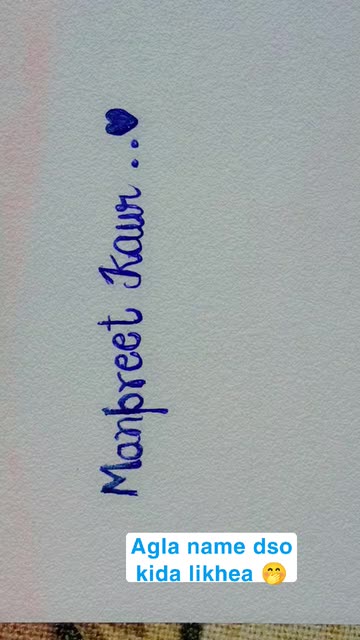 Manpreet Kaur ..💙
Agla name dso
kida likhea 🤭